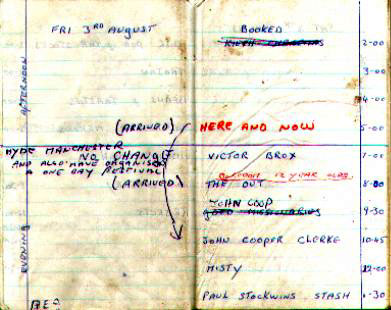 FRI 3RD AUGUST
AFTERNOON
(ARRIVED)
HYDE MANCHESTER
NO CHANGE
AND ALSO HAVE ORGANISED
A ONE DAY FESTIVAL
(ARRIVED)
EVENING
BOOKED
2-00
3-00
4-00
HERE AND NOW
5-00
VICTOR BROX
7-00
12 YEAR OLDS
THE OUT
8-00
JOHN COOP
9-30
JOHN COOPER CLERKE
10-45
MISTY
12-00
PAUL STOCKWINS STASH
1-30